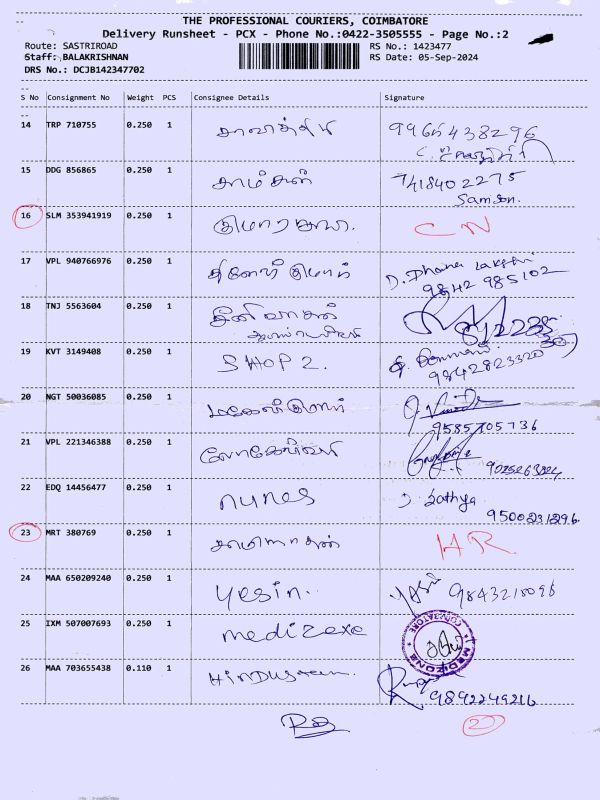 THE PROFESSIONAL COURIERS, COIMBATORE
Delivery Runsheet - PCX - Phone No.:0422-3505555 - Page No.:2
Route: SASTRIROAD RS No.: 1423477
Staff: BALAKRISHNAN RS Date: 05-Sep-2024
DRS No.: DCJB142347702
S No Consignment No Weight PCS Consignee Details Signature
14 TRP 710755 0.250 1 9965438296
15 DDG 856865 0.250 1 சாம்சன் 7418402275
Samson.
16 SLM 353941919 0.250 1 CN
17 VPL 940766976 0.250 1 D. Dhana Lakshmi
9842 985102
18 TNJ 5563604 0.250 1 சீனிவாசன்
19 KVT 3149408 0.250 1 SHOP 2.
9842823320
20 NGT 50036085 0.250 1
9585705736
21 VPL 221346388 0.250 1
22 EDQ 14456477 0.250 1 nunes J. Sathya
9500231296
23 MRT 380769 0.250 1 HR
24 MAA 650209240 0.250 1 yesin.. 9843210096
25 IXM 507007693 0.250 1 medizone COIMBATORE MEDIZONE
26 MAA 703655438 0.110 1 HINDUSTAN
9892249216
2